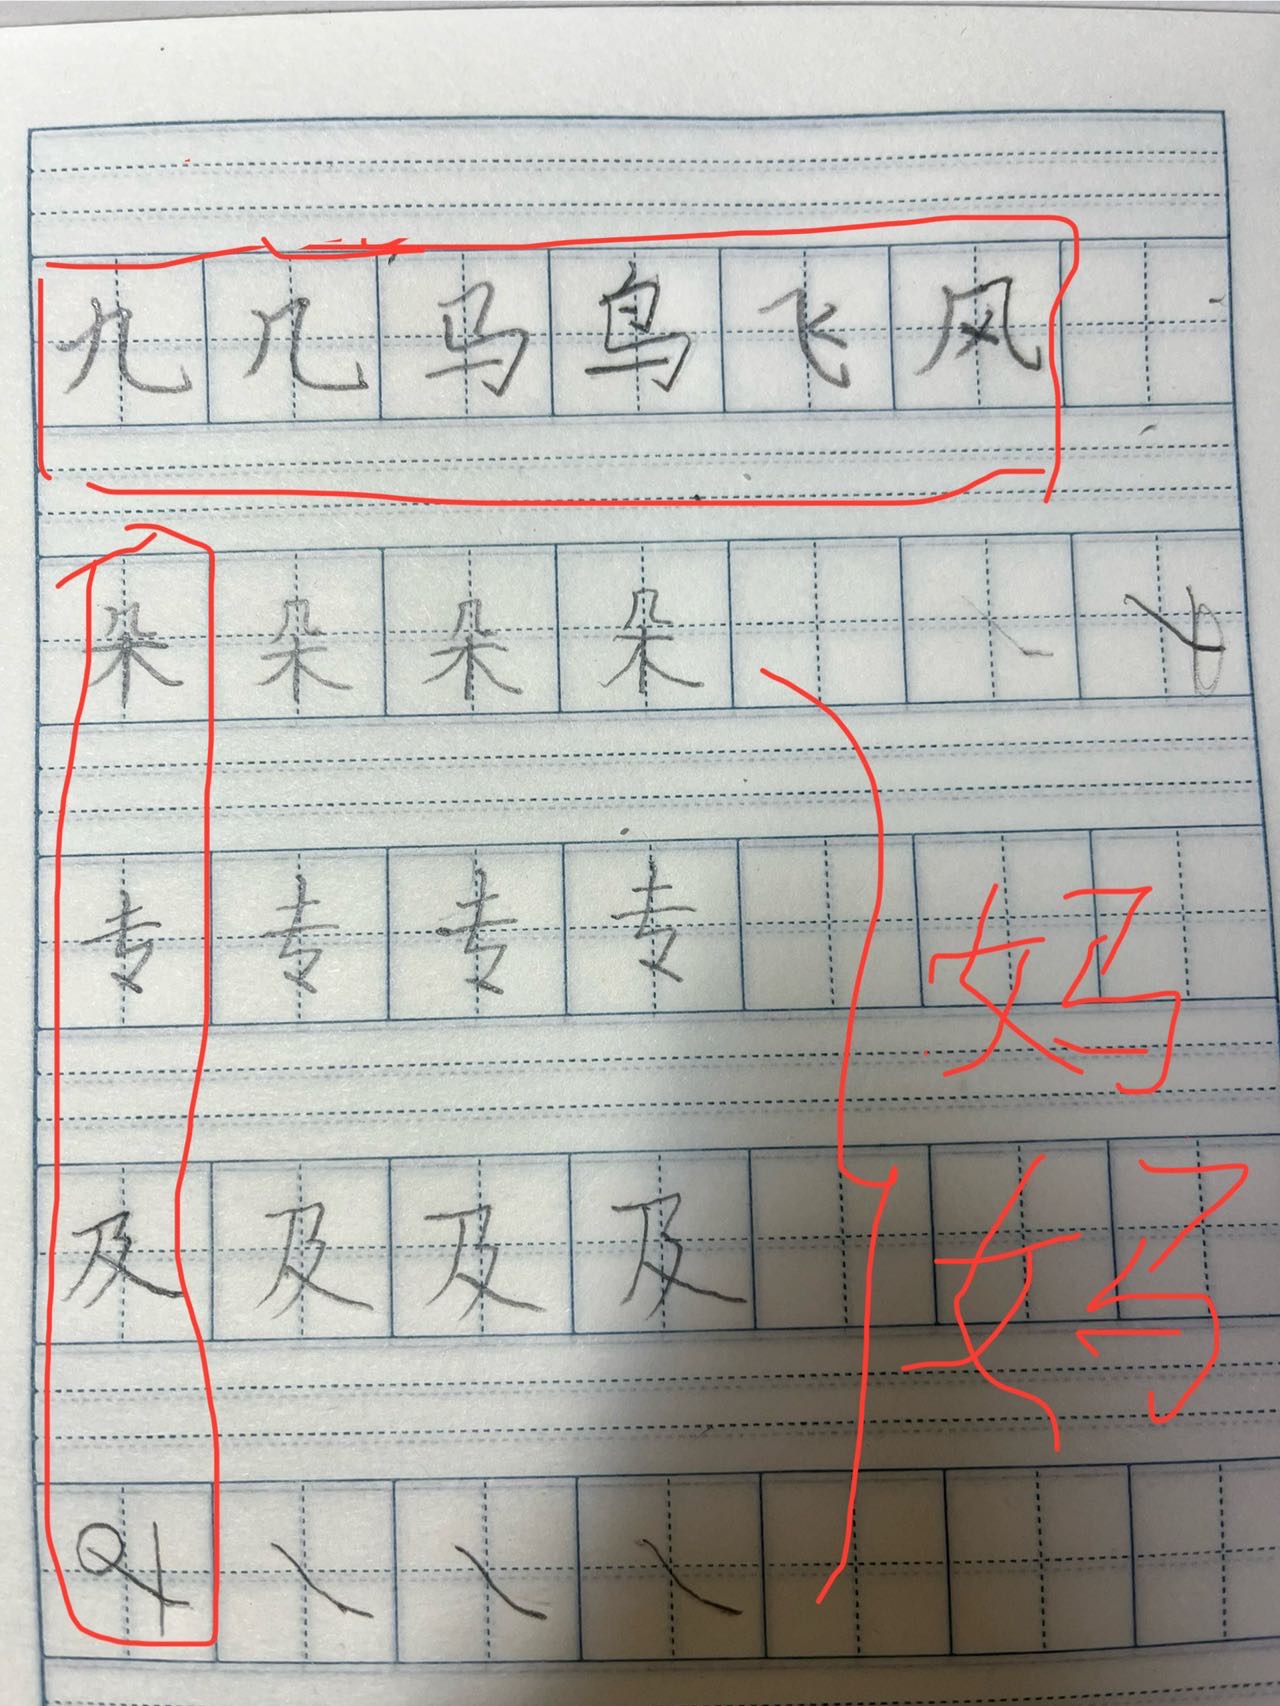 九几马鸟飞风
朵朵朵朵
专专专专
妈
及及及及
妈